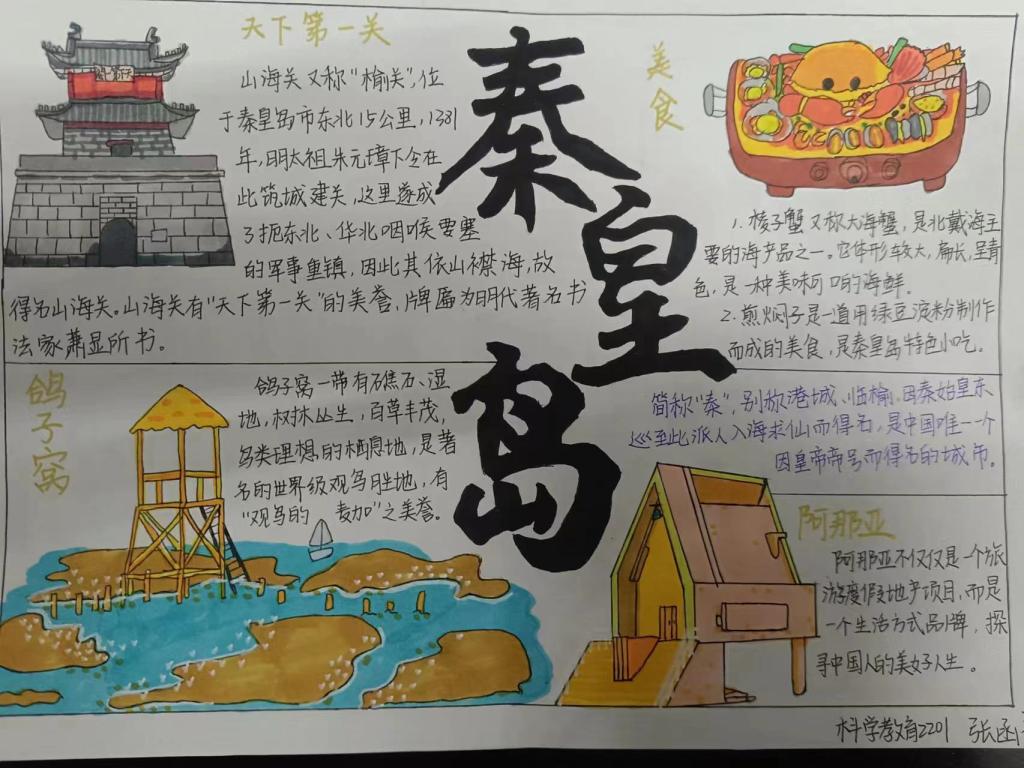 秦皇岛
天下第一关
山海关又称“榆关”，位
于秦皇岛市东北15公里，1381
年，明太祖朱元璋下令在
此筑城建关，这里遂成
了扼东北、华北咽喉要塞
的军事重镇，因此其依山襟海，故
得名山海关。山海关有“天下第一关”的美誉，牌匾为明代著名书
法家萧显所书。
美食
1. 梭子蟹又称大海蟹，是北戴海主
要的海产品之一。它体形较大，扁长，呈青
色，是一种美味可口的海鲜。
2. 煎焖子是一道用绿豆淀粉制作
而成的美食，是秦皇岛特色小吃。
简称“秦”，别称港城、临榆、因秦始皇东
巡至此派人入海求仙而得名，是中国唯一一个
因皇帝帝号而得名的城市。
鸽子窝
鸽子窝一带有礁石、湿
地，树林丛生，百草丰茂，
鸟类理想的栖息地，是著
名的世界级观鸟胜地，有
“观鸟的 麦加”之美誉。
阿那亚
阿那亚不仅仅是一个旅
游度假地产项目，而是
一个生活方式品牌，探
寻中国人的美好人生。
科学教育2201 张函